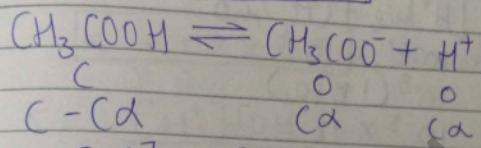 CH₃COOH ⇌ CH₃COO⁻ + H⁺
C O O
C - Cα Cα Cα